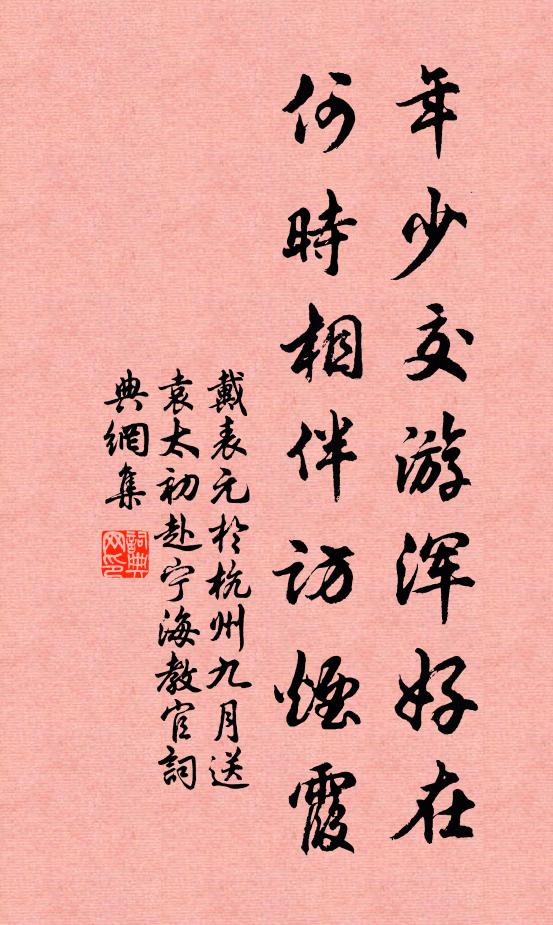 年少交游浑好在
何時相伴訪煙霞
戴表元於杭州九月送
袁太初赴宁海教官詞
典網集
詞典网印